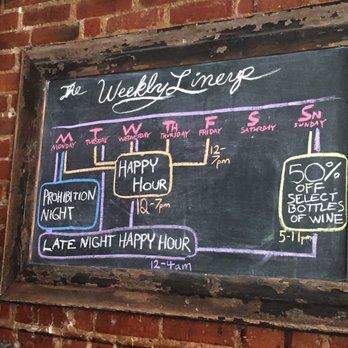 The Weekly Lineup
M T W TH F S SN
MONDAY TUESDAY WEDNESDAY THURSDAY FRIDAY SATURDAY SUNDAY
12-
7pm
HAPPY
HOUR
12-7pm
PROHIBITION
NIGHT
50%
OFF
SELECT
BOTTLES
OF WINE
5-11pm
LATE NIGHT HAPPY HOUR
12-4am